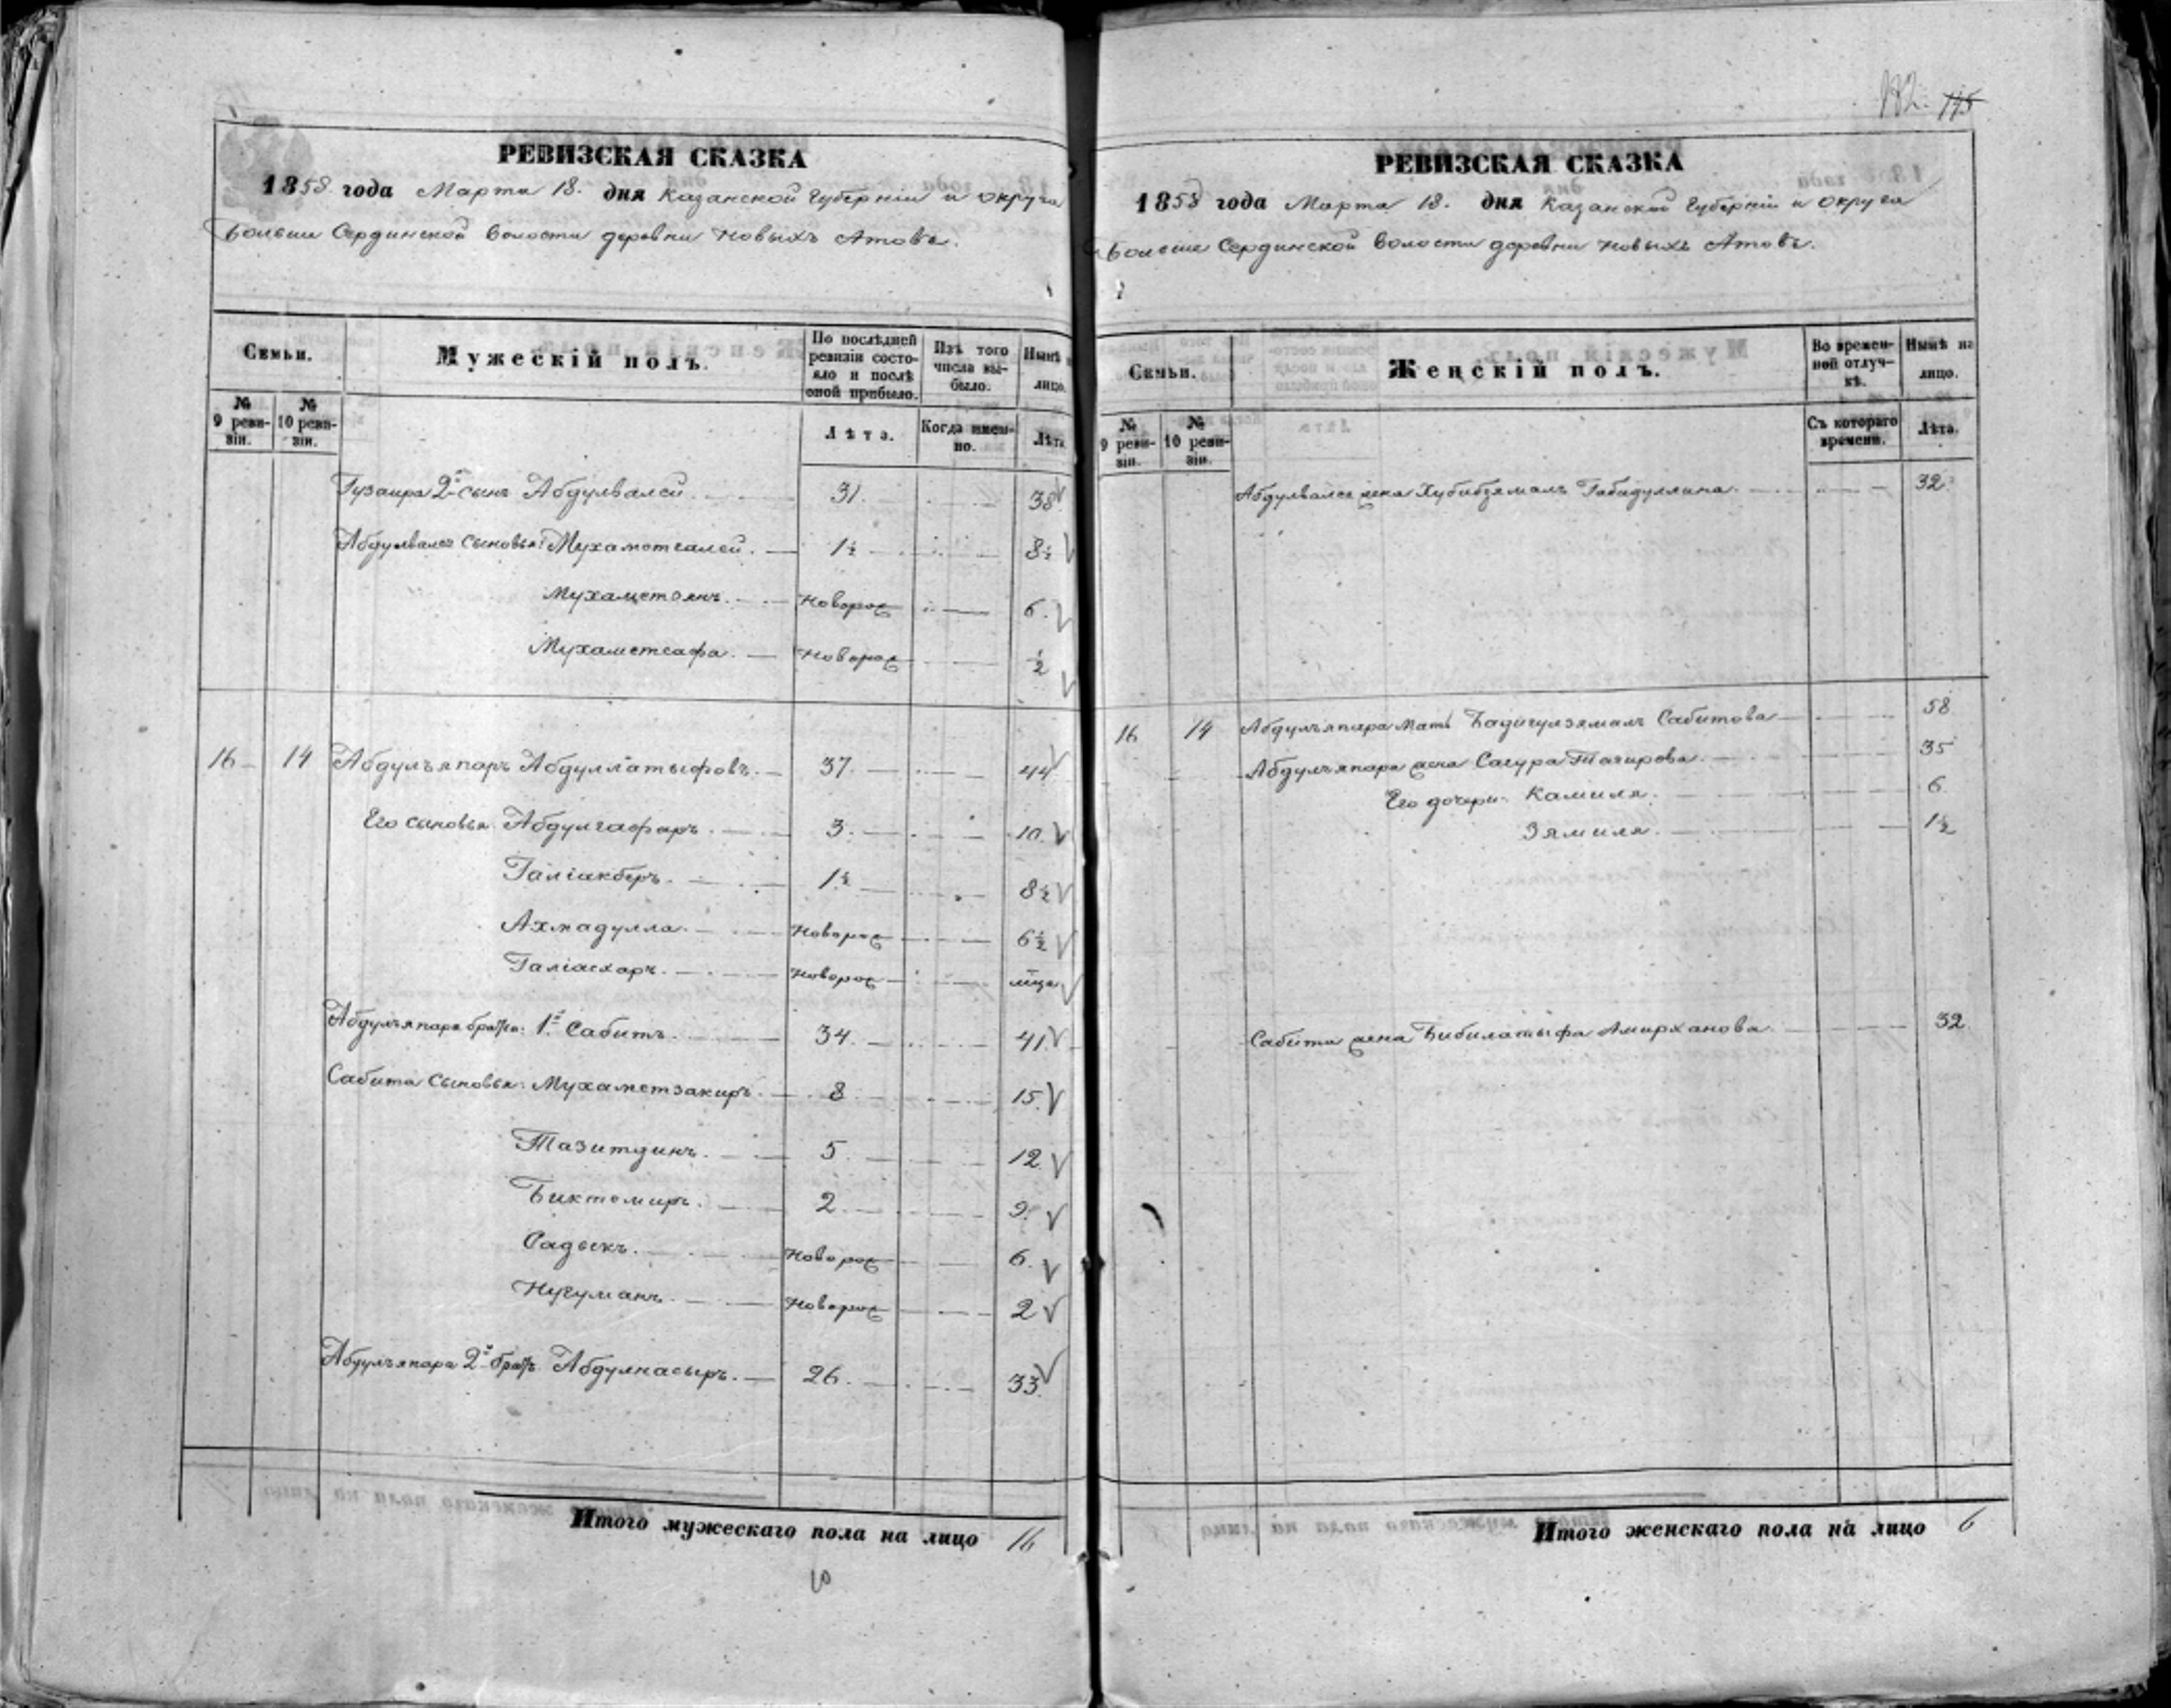 РЕВИЗСКАЯ СКАЗКА
1858 года Марта 18. дня Казанской Губерніи и округа
Больше Сердинской волости деревни Новыхъ Атовъ.
Семьи.
Мужескій полъ.
По послѣдней ревизіи состояло и послѣ оной прибыло.
Изъ того числа выбыло.
Нынѣ на лицо.
№ 9 ревизіи.
№ 10 ревизіи.
Лѣта.
Когда именно.
Лѣта
Гузаира 2й сынъ Абдулвалей 31. 38
Абдулвалея сыновья: Мухаметгалей. 1½ 8½
Мухаметянъ. Новорож 6.
Мухаметсафа. Новорож ½
16 14 Абдулъяпаръ Абдуллатыфовъ. 37. 44
Его сыновья. Абдулгафаръ. 3. 10.
Галіакберъ. 1½ 8½
Ахмадулла. Новорож 6½
Галіасхаръ. Новорож
Абдулъяпара братья: 1й Сабитъ. 34. 41.
Сабита сыновья: Мухаметзакиръ. 8 15.
Тазитдинъ. 5. 12
Биктемиръ. 2. 9.
Садыкъ. Новорож 6.
Нугуманъ. Новорож 2
Абдулъяпара 2й братъ Абдулнасыръ. 26. 33.
Итого мужескаго пола на лицо 16
182. 115
РЕВИЗСКАЯ СКАЗКА
1858 года Марта 18. дня Казанской Губерніи и округа
Больше Сердинской волости деревни Новыхъ Атовъ.
Семьи.
Женскій полъ.
Во временной отлучкѣ.
Нынѣ на лицо.
№ 9 ревизіи.
№ 10 ревизіи.
Съ котораго времени.
Лѣта.
Абдулвалея жена Хубибзямалъ Габидуллина. 32
16 14 Абдулъяпара мать Бадигулзямалъ Сабитова 58
Абдулъяпара жена Сагура Тагирова. 35
Его дочери: Камиля. 6
Зямиля. 1½
Сабита жена Бибилатыфа Амирханова. 32
Итого женскаго пола на лицо 6